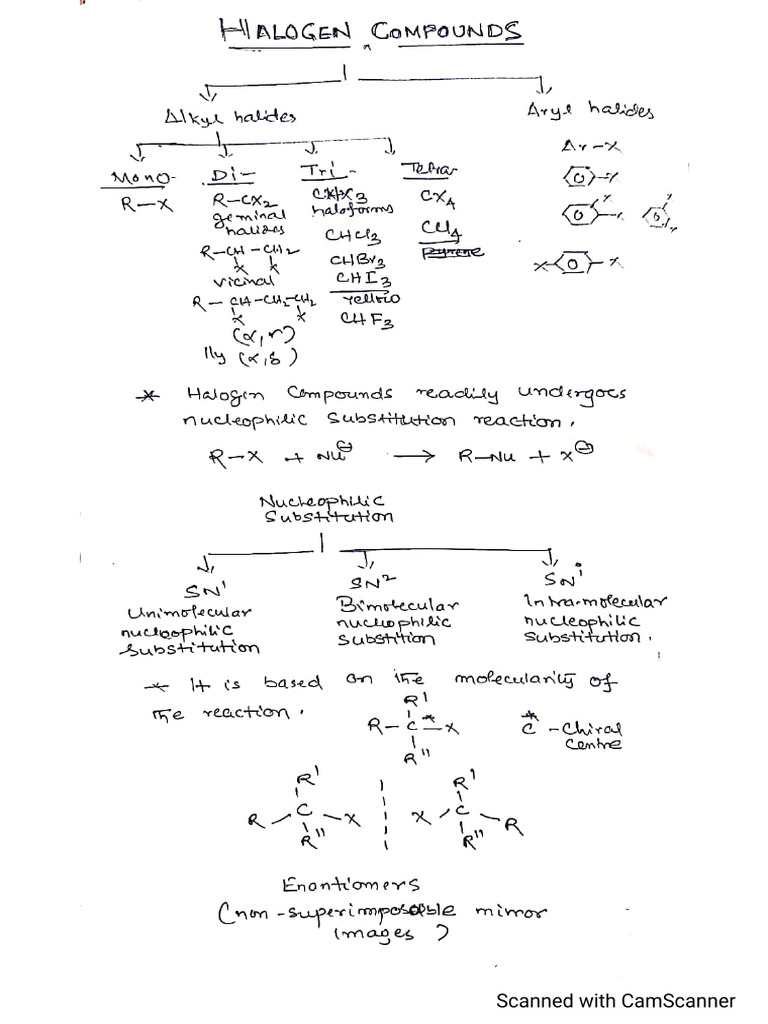 HALOGEN COMPOUNDS
Alkyl halides
Aryl halides
Mono-
R-X
Di-
R-CX2
geminal
halides
R-CH-CH2
X X
vicinal
R-CH-CH2-CH2
X X
(α,γ)
lly (α,δ)
Tri-
CHX3
haloforms
CHCl3
CHBr3
CHI3
Yellow
CHF3
Tetra-
CX4
CCl4
Pyrene
Ar-X
-X
X
-X
X
X
X- -X
* Halogen Compounds readily undergoes
nucleophilic substitution reaction.
R-X + Nu⊖ → R-Nu + X⊖
Nucleophilic
Substitution
SN1
Unimolecular
nucleophilic
substitution
SN2
Bimolecular
nucleophilic
substition
SNi
Intra-molecular
nucleophilic
substitution.
* It is based on the molecularity of
the reaction.
R'
R-C*-X
R"
C* -Chiral
centre
R'
R C -X
R"
R'
X C -R
R"
Enantiomers
(non-superimposable mirror
images)
Scanned with CamScanner